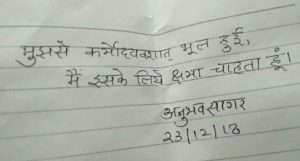 मुझसे कर्मोदयवशात् भूल हुई,
मैं इसके लिये क्षमा चाहता हूं।
अनुभवसागर
23/12/18